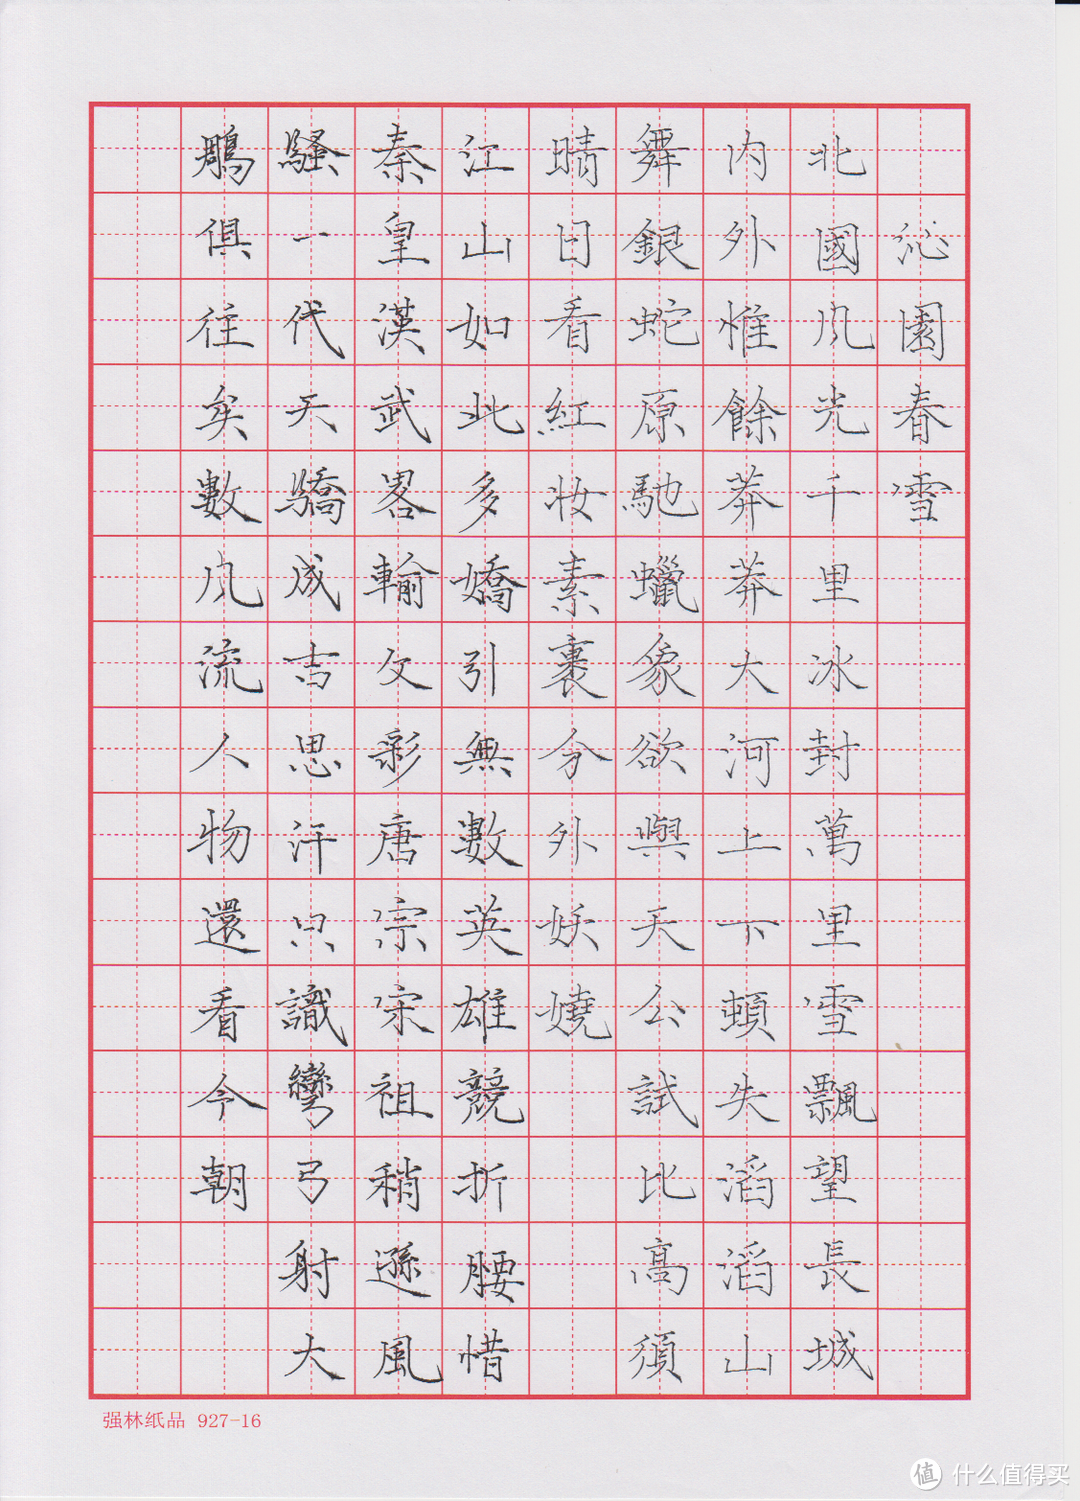 沁園春雪
北國風光千里冰封萬里雪飄望長城
内外惟餘莽莽大河上下頓失滔滔山
舞銀蛇原馳蠟象欲與天公試比高須
晴日看紅妝素裹分外妖嬈
江山如此多嬌引無數英雄競折腰惜
秦皇漢武畧輸文彩唐宗宋祖稍遜風
騷一代天驕成吉思汗只識彎弓射大
鵰俱往矣數風流人物還看今朝
强林纸品 927-16
值 什么值得买